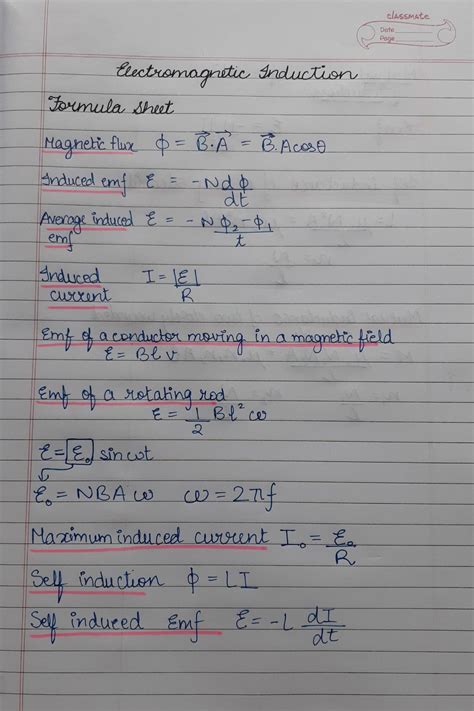 classmate
Date
Page
Electromagnetic Induction
Formula Sheet
Magnetic flux ϕ = B⃗.A⃗ = B⃗.Acosθ
Induced emf ε = -N dϕ/dt
Average induced emf ε = -N ϕ₂-ϕ₁/t
Induced current I = |ε|/R
Emf of a conductor moving in a magnetic field
ε = Blv
Emf of a rotating rod
ε = 1/2 Bl²ω
ε = ε₀ sinωt
ε₀ = NBAω ω = 2πf
Maximum induced current I₀ = ε₀/R
Self induction ϕ = LI
Self induced Emf ε = -L dI/dt